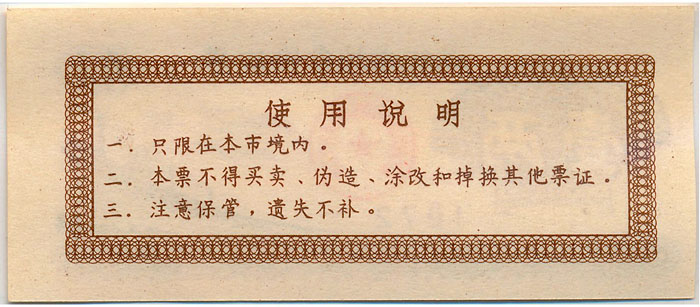 使用说明
一．只限在本市境内。
二．本票不得买卖、伪造、涂改和掉换其他票证．
三．注意保管，遗失不补。